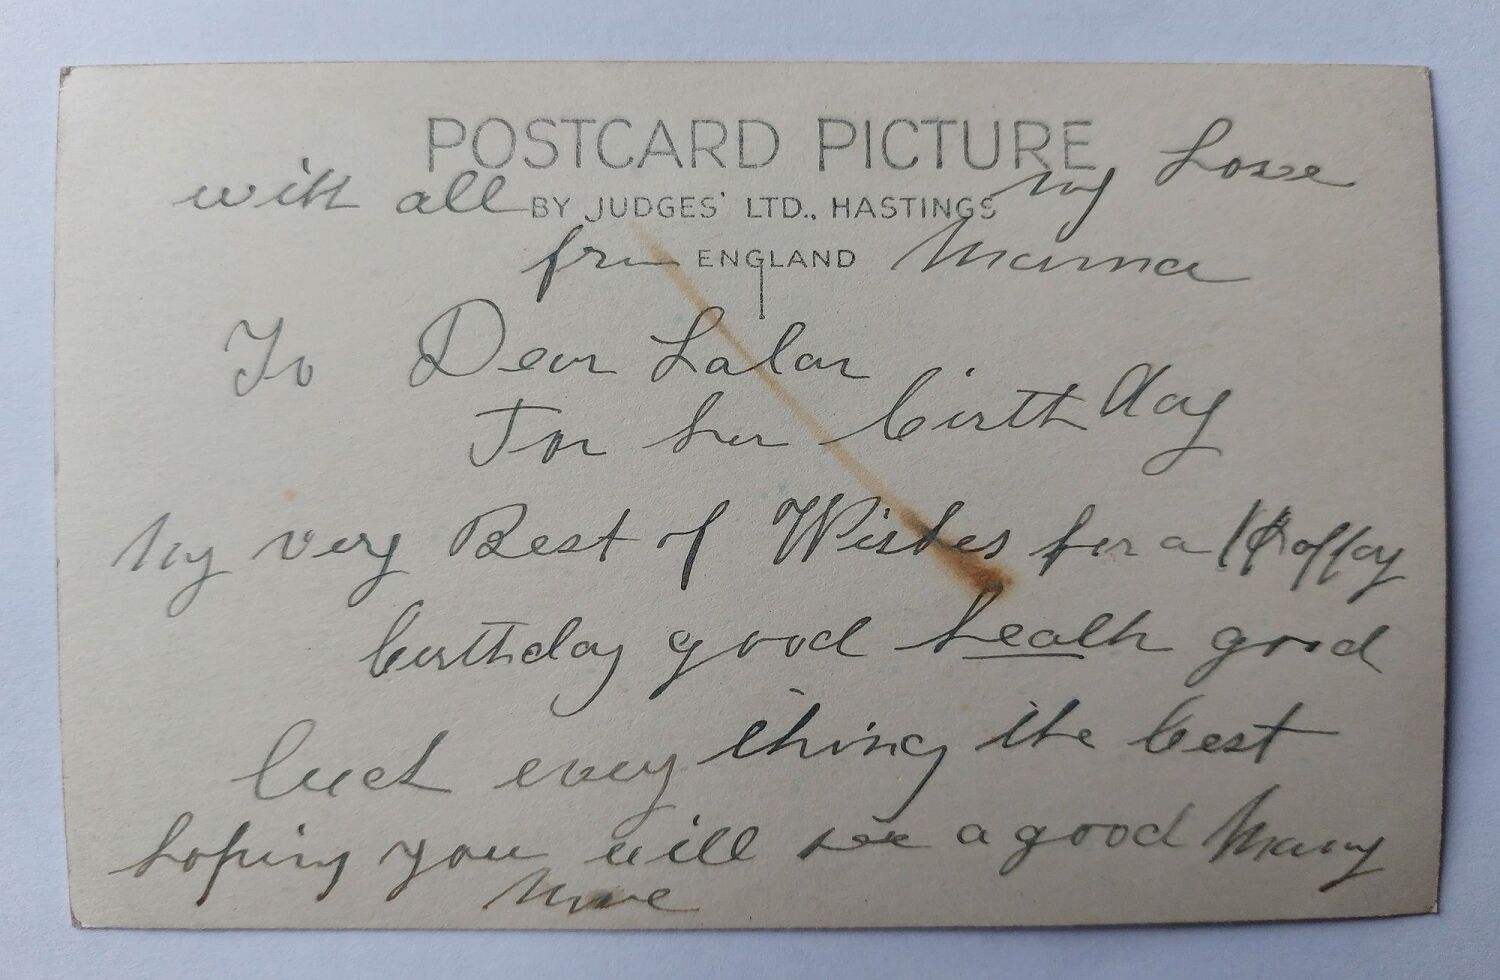 POSTCARD PICTURE
with all my Love
BY JUDGES' LTD., HASTINGS
from Mama
ENGLAND
To Dear Lalar
For her birthday
My very Best of Wishes for a Happy
birthday good health good
luck every thing the best
hoping you will see a good Many
More